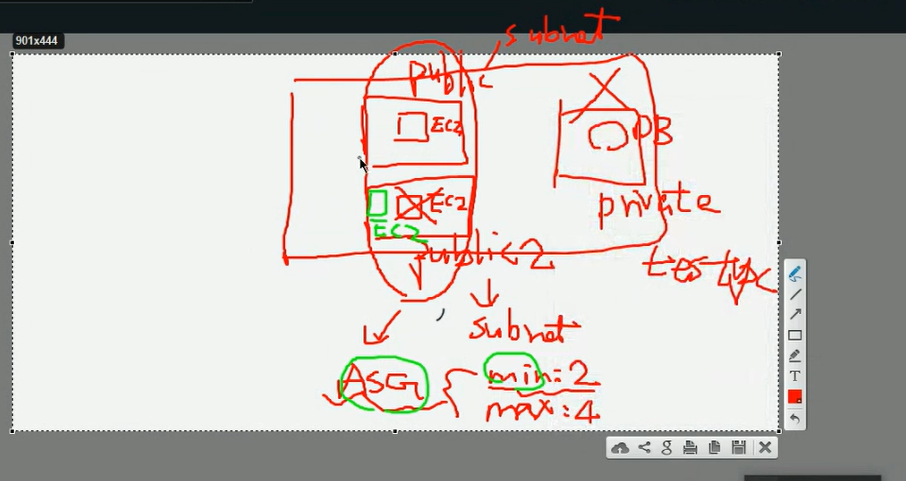 901x444
subnet
public
EC2
DB
EC2
EC2
private
public 2
test vpc
subnet
ASG
min: 2
max: 4
T
g